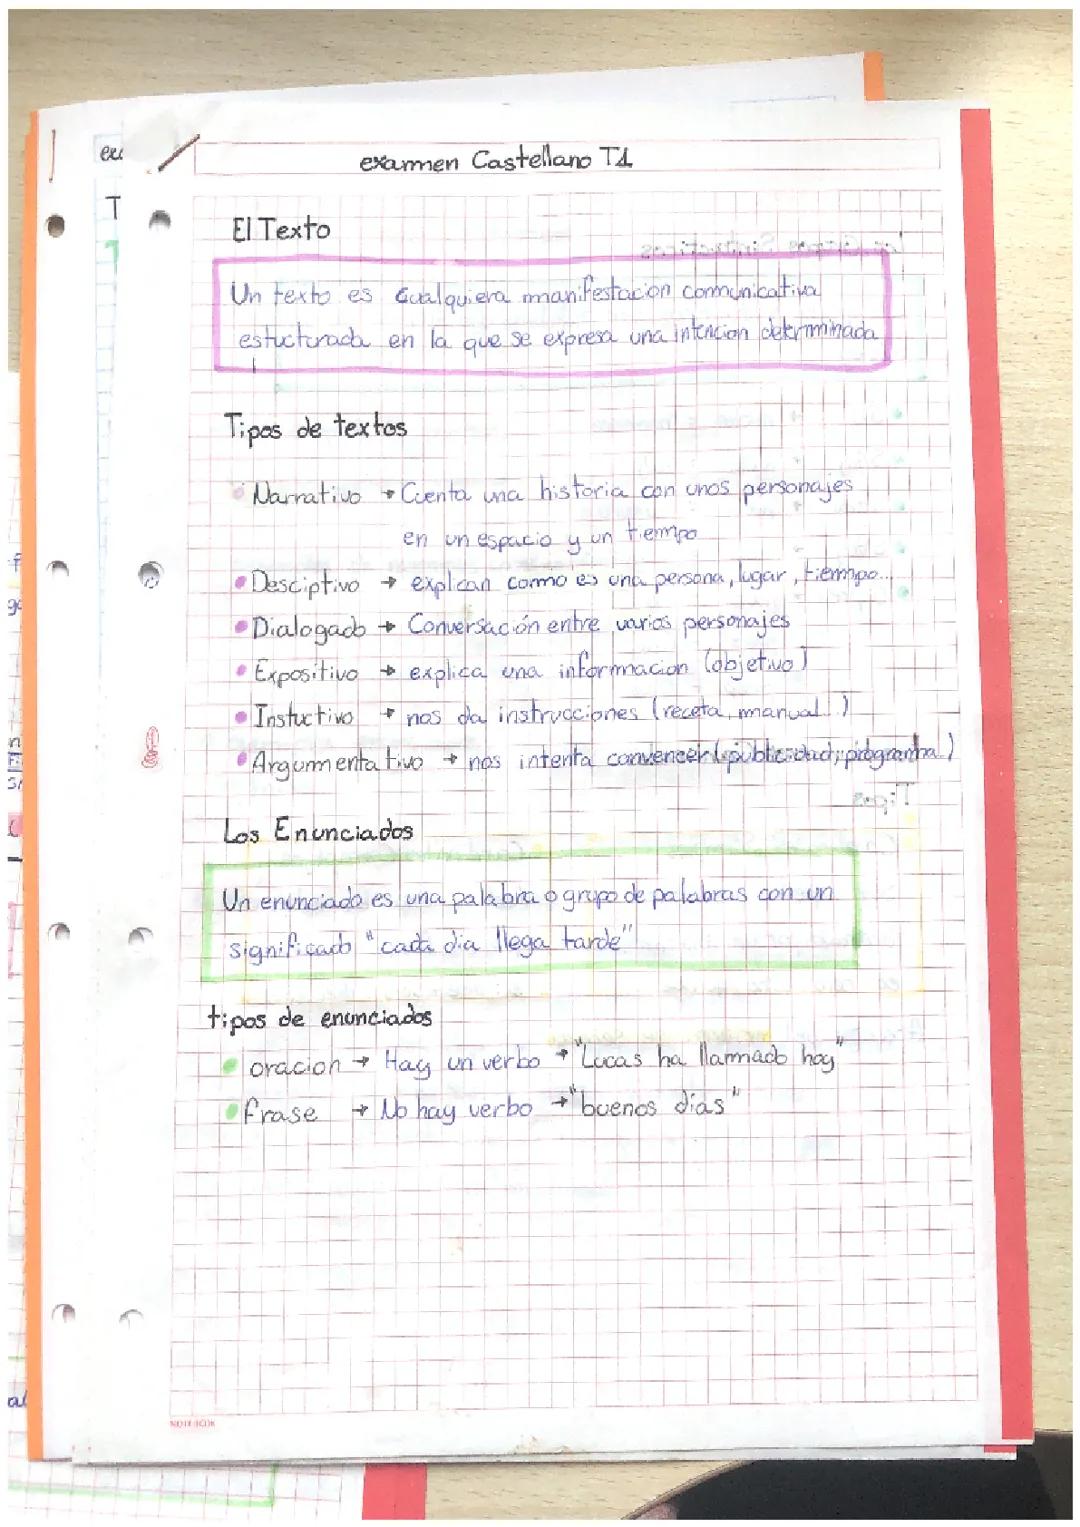 examen Castellano T1
El Texto
Un texto es cualquiera manifestacion comunicativa
estucturada en la que se expresa una intencion determinada
Tipos de textos
Narrativo → Cuenta una historia con unos personajes
en un espacio y un tiempo
Desciptivo → explican como es una persona, lugar, tiempo...
Dialogado → Conversación entre varios personajes
Expositivo → explica una informacion (objetivo)
Instuctivo → nos da instrucciones (receta, manual..)
Argumentativo → nos intenta convencer (publicidad, programa.)
Los Enunciados
Un enunciado es una palabra o grupo de palabras con un
significado "cada dia llega tarde"
tipos de enunciados
oracion → Hay un verbo → "Lucas ha llamado hoy"
frase → No hay verbo → "buenos días"
NOTEBOOK